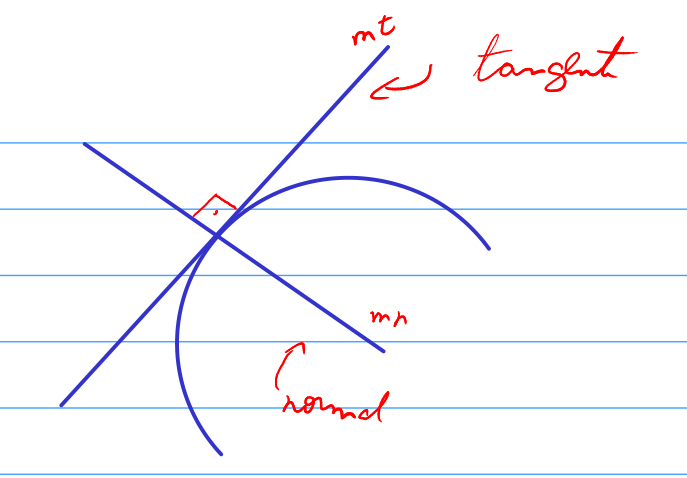 mt
tangent
mn
normal